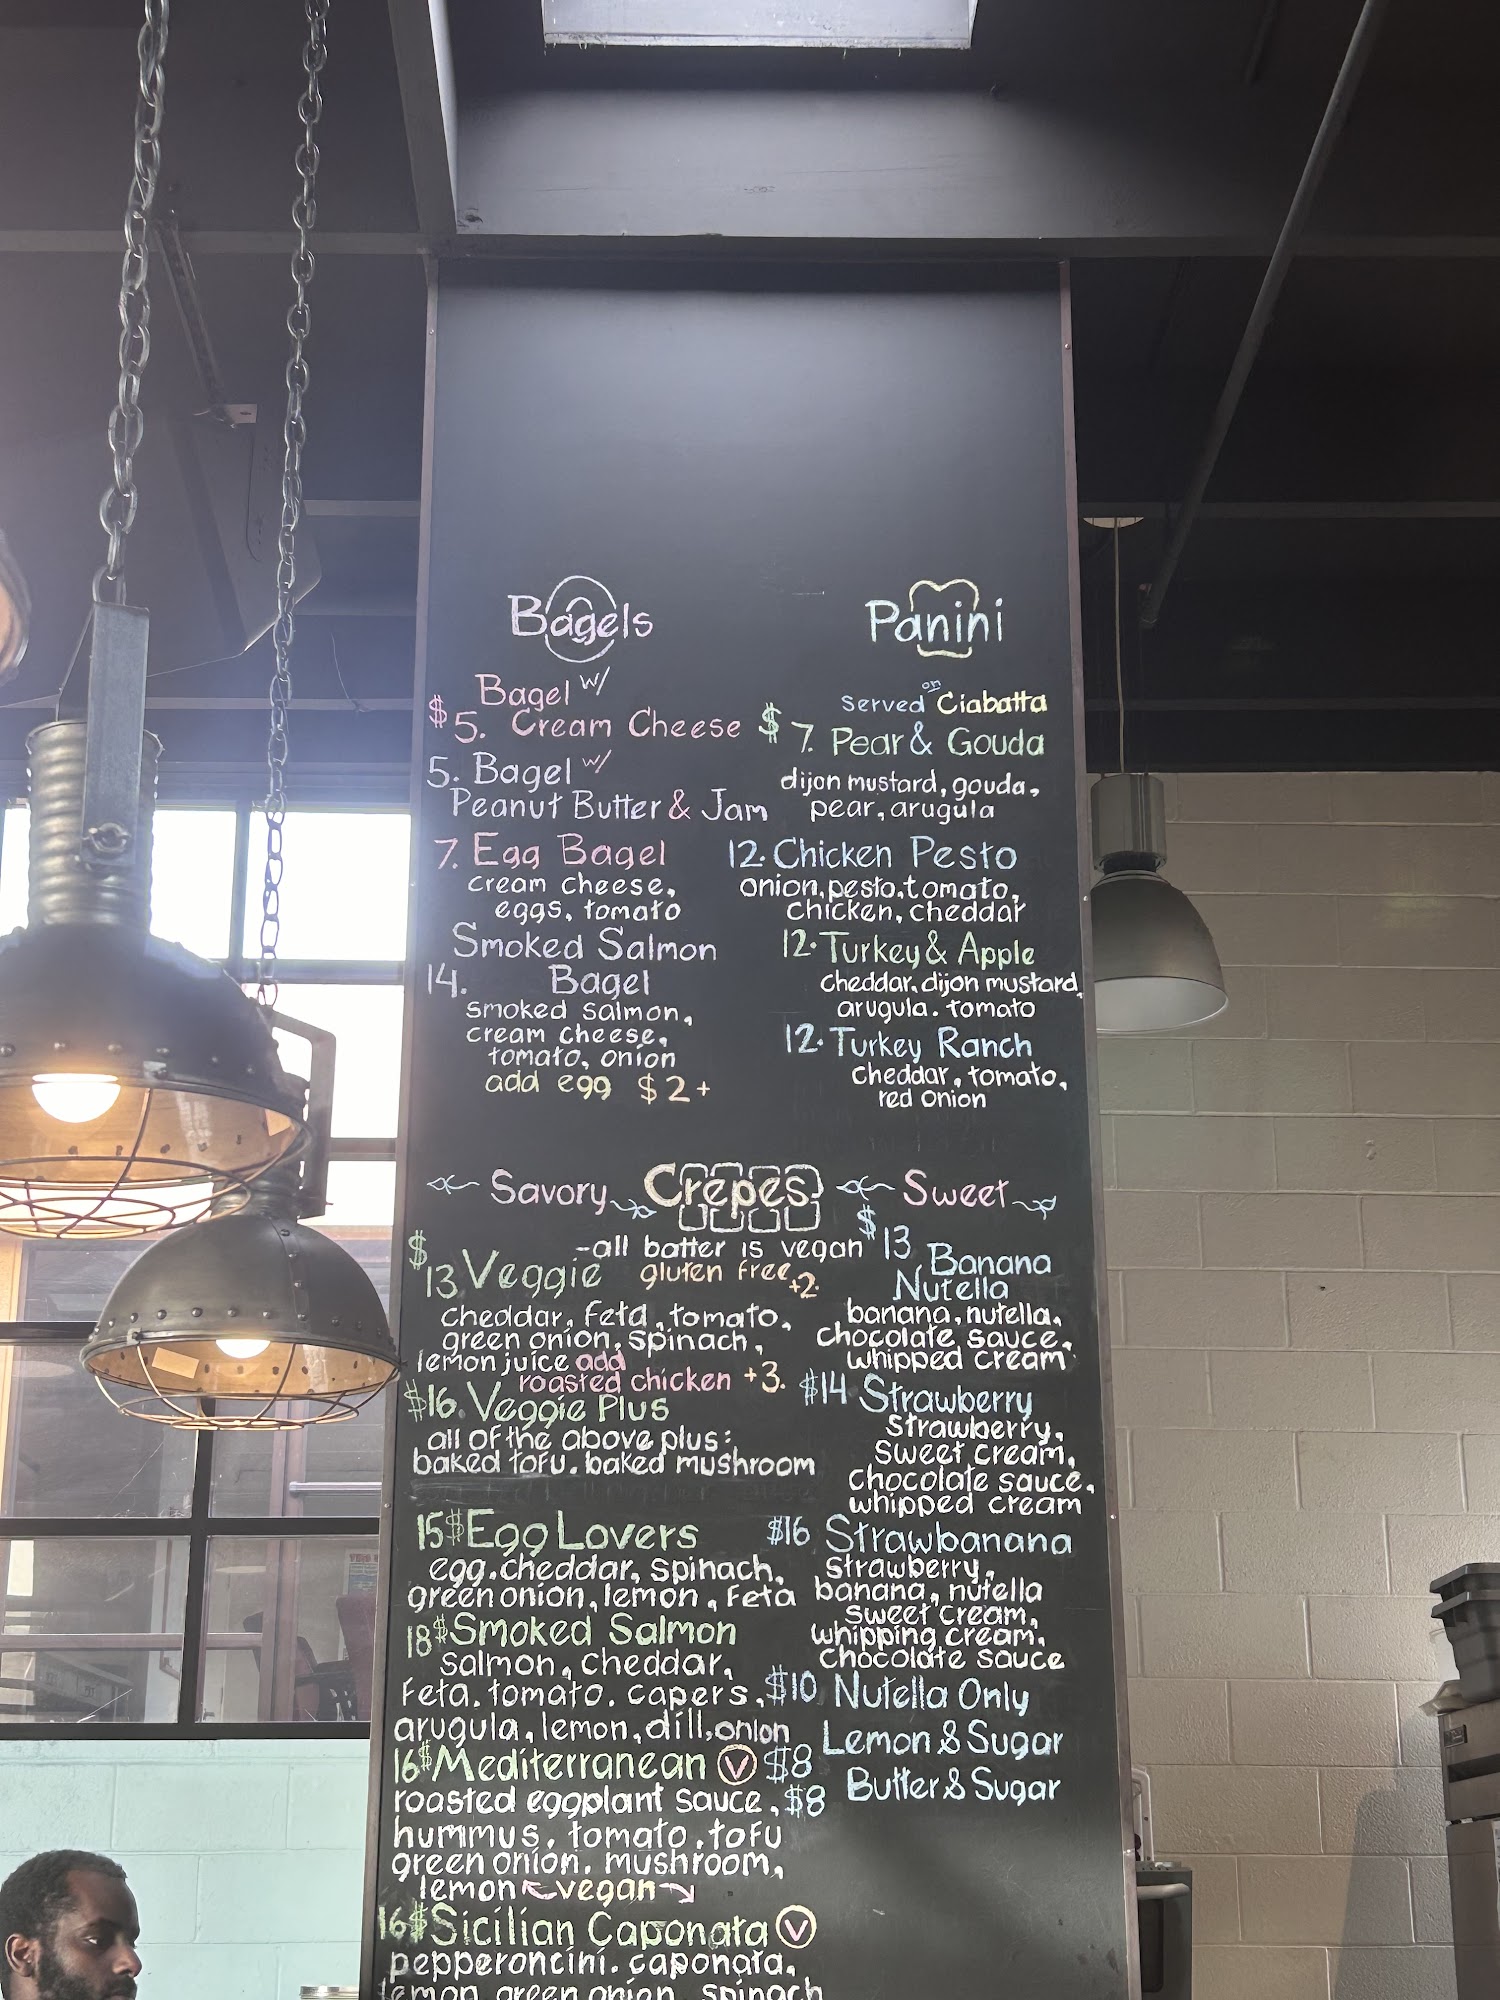 Bagels
Bagel w/
$5. Cream Cheese
5. Bagel w/
Peanut Butter & Jam
7. Egg Bagel
cream cheese,
eggs, tomato
Smoked Salmon
14. Bagel
smoked salmon,
cream cheese,
tomato, onion
add egg $2+
Panini
served on Ciabatta
$7. Pear & Gouda
dijon mustard, gouda,
pear, arugula
12. Chicken Pesto
onion, pesto, tomato,
chicken, cheddar
12. Turkey & Apple
cheddar, dijon mustard,
arugula. tomato
12. Turkey Ranch
cheddar, tomato,
red onion
Savory Crepes Sweet
-all batter is vegan
gluten free +2
$13 Veggie
cheddar, feta, tomato,
green onion, spinach,
lemon juice add
roasted chicken +3.
$16. Veggie Plus
all of the above plus:
baked tofu. baked mushroom
15$ Egg Lovers
egg. cheddar, spinach,
green onion, lemon, feta
18$ Smoked Salmon
salmon, cheddar,
feta. tomato. capers,
arugula, lemon, dill, onion
16$ Mediterranean V
roasted eggplant sauce,
hummus. tomato. tofu
green onion. mushroom,
lemon vegan
16$ Sicilian Caponata V
pepperoncini. caponata,
lemon green onion spinach
$13 Banana
Nutella
banana, nutella,
chocolate sauce,
whipped cream
$14 Strawberry
strawberry,
sweet cream,
chocolate sauce,
whipped cream
$16 Strawbanana
strawberry,
banana, nutella
sweet cream,
whipping cream,
chocolate sauce
$10 Nutella Only
$8 Lemon & Sugar
$8 Butter & Sugar